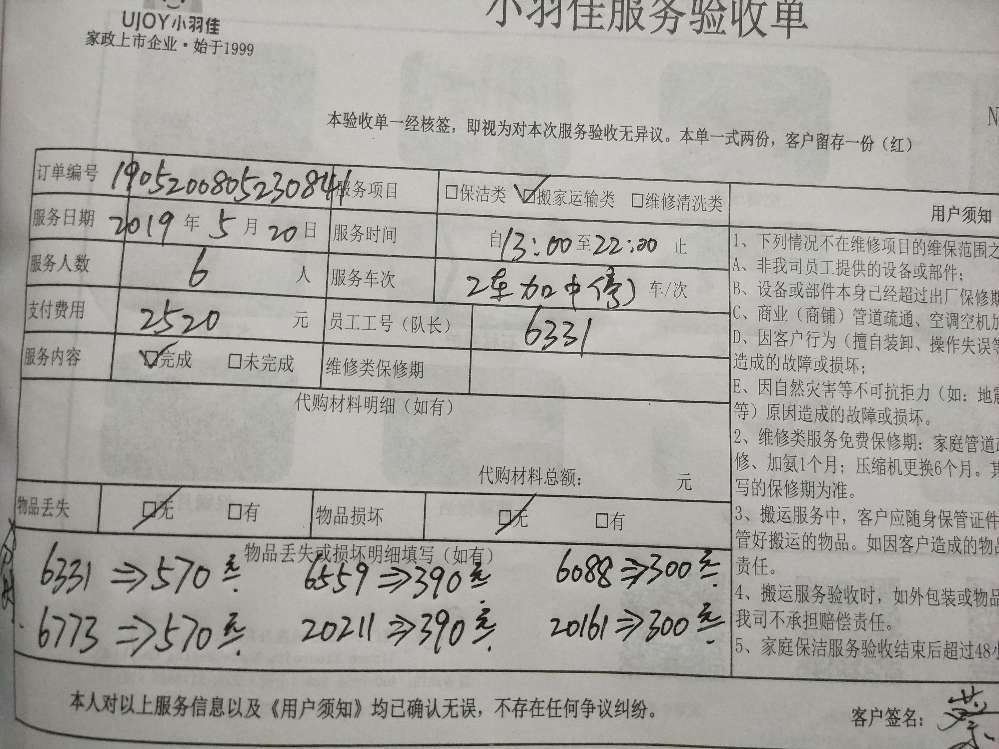 UJOY小羽佳
家政上市企业·始于1999
小羽佳服务验收单
N
本验收单一经核签，即视为对本次服务验收无异议。本单一式两份，客户留存一份（红）
订单编号 1905200805230841 服务项目 □保洁类 ☑搬家运输类 □维修清洗类
服务日期 2019年5月20日 服务时间 自13:00至22:00止
服务人数 6人 服务车次 2车加中停 车/次
支付费用 2520元 员工工号（队长） 6331
服务内容 ☑完成 □未完成 维修类保修期
代购材料明细（如有）
代购材料总额： 元
物品丢失 ☑无 □有 物品损坏 ☑无 □有
物品丢失或损坏明细填写（如有）
6331⇒570元 6559⇒390元 6088⇒300元
6773⇒570元 20211⇒390元 20161⇒300元
本人对以上服务信息以及《用户须知》均已确认无误，不存在任何争议纠纷。
客户签名： 蔡
用户须知
1、下列情况不在维修项目的维保范围之
A、非我司员工提供的设备或部件；
B、设备或部件本身已经超过出厂保修期
C、商业（商铺）管道疏通、空调空机加
D、因客户行为（擅自装卸、操作失误等
造成的故障或损坏；
E、因自然灾害等不可抗拒力（如：地震
等）原因造成的故障或损坏。
2、维修类服务免费保修期：家庭管道疏
修、加氨1个月；压缩机更换6个月。其
写的保修期为准。
3、搬运服务中，客户应随身保管证件
管好搬运的物品。如因客户造成的物品
责任。
4、搬运服务验收时，如外包装或物品
我司不承担赔偿责任。
5、家庭保洁服务验收结束后超过48小